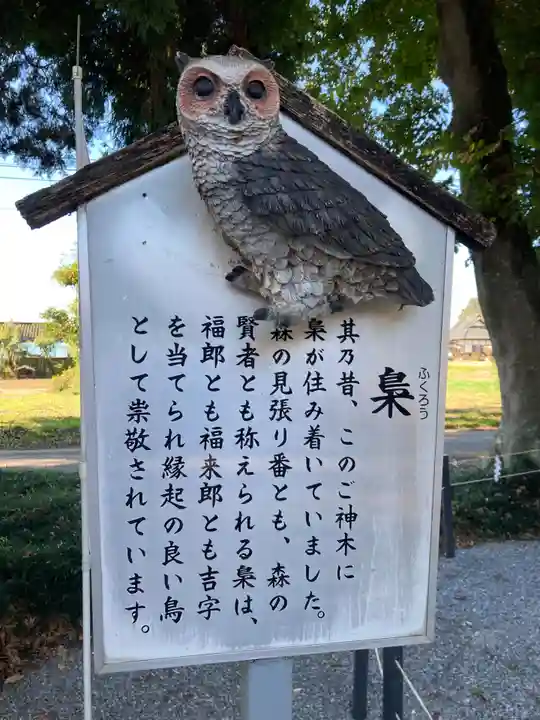 梟
ふくろう
其乃昔、このご神木に
梟が住み着いていました。
森の見張り番とも、森の
賢者とも称えられる梟は、
福郎とも福来郎とも吉字
を当てられ縁起の良い鳥
として崇敬されています。